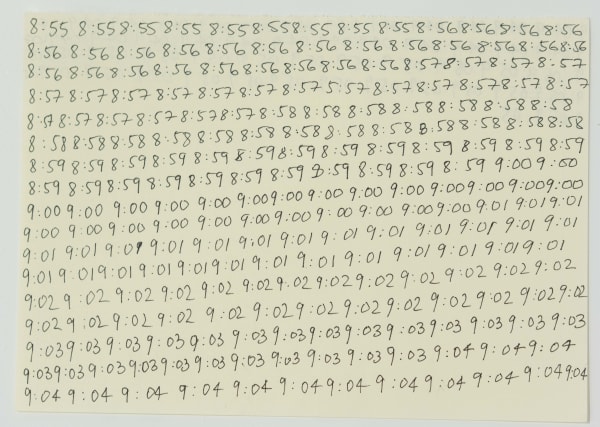 8:55 8:55 8:55 8:55 8:55 8:55 8:55 8:55 8:55 8:56 8:56 8:56 8:56
8:56 8:56 8:56 8:56 8:56 8:56 8:56 8:56 8:56 8:56 8:56 8:56 8:56
8:56 8:56 8:56 8:56 8:56 8:56 8:56 8:56 8:56 8:57 8:57 8:57 8:57
8:57 8:57 8:57 8:57 8:57 8:57 8:57 8:57 8:57 8:57 8:57 8:57 8:57
8:57 8:57 8:57 8:57 8:57 8:57 8:58 8:58 8:58 8:58 8:58 8:58 8:58
8:58 8:58 8:58 8:58 8:58 8:58 8:58 8:58 8:58 8:58 8:58 8:58 8:58
8:59 8:59 8:59 8:59 8:59 8:59 8:59 8:59 8:59 8:59 8:59 8:59 8:59
8:59 8:59 8:59 8:59 8:59 8:59 8:59 8:59 8:59 8:59 8:59 9:00 9:00
9:00 9:00 9:00 9:00 9:00 9:00 9:00 9:00 9:00 9:00 9:00 9:00 9:00
9:00 9:00 9:00 9:00 9:00 9:00 9:00 9:00 9:00 9:00 9:00 9:01 9:01
9:01 9:01 9:01 9:01 9:01 9:01 9:01 9:01 9:01 9:01 9:01 9:01 9:01
9:01 9:01 9:01 9:01 9:01 9:01 9:01 9:01 9:01 9:01 9:01 9:01 9:01
9:02 9:02 9:02 9:02 9:02 9:02 9:02 9:02 9:02 9:02 9:02 9:02 9:02
9:02 9:02 9:02 9:02 9:02 9:02 9:02 9:02 9:02 9:02 9:02 9:02 9:02
9:03 9:03 9:03 9:03 9:03 9:03 9:03 9:03 9:03 9:03 9:03 9:03 9:03
9:03 9:03 9:03 9:03 9:03 9:03 9:03 9:03 9:03 9:03 9:04 9:04 9:04
9:04 9:04 9:04 9:04 9:04 9:04 9:04 9:04 9:04 9:04 9:04 9:04